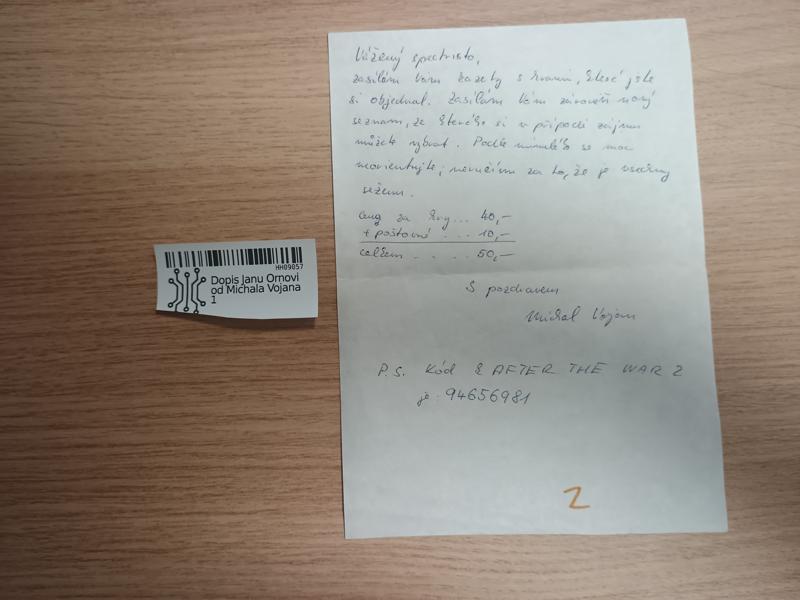 HH09057
Dopis Janu Ornovi
od Michala Vojana
1
Vážený spectristo,
zasílám Vám kazety s hrami, které jste
si objednal. Zasílám Vám zároveň nový
seznam, ze kterého si v případě zájmu
můžete vybrat. Podle minulého se moc
neorientujte; neručím za to, že je všechny
seženu.
Ceny za hry... 40,-
+ poštovné . . . 10,-
celkem . . . . 50,-
S pozdravem
Michal Vojan
P.S. Kód k AFTER THE WAR 2
je: 94656981
2